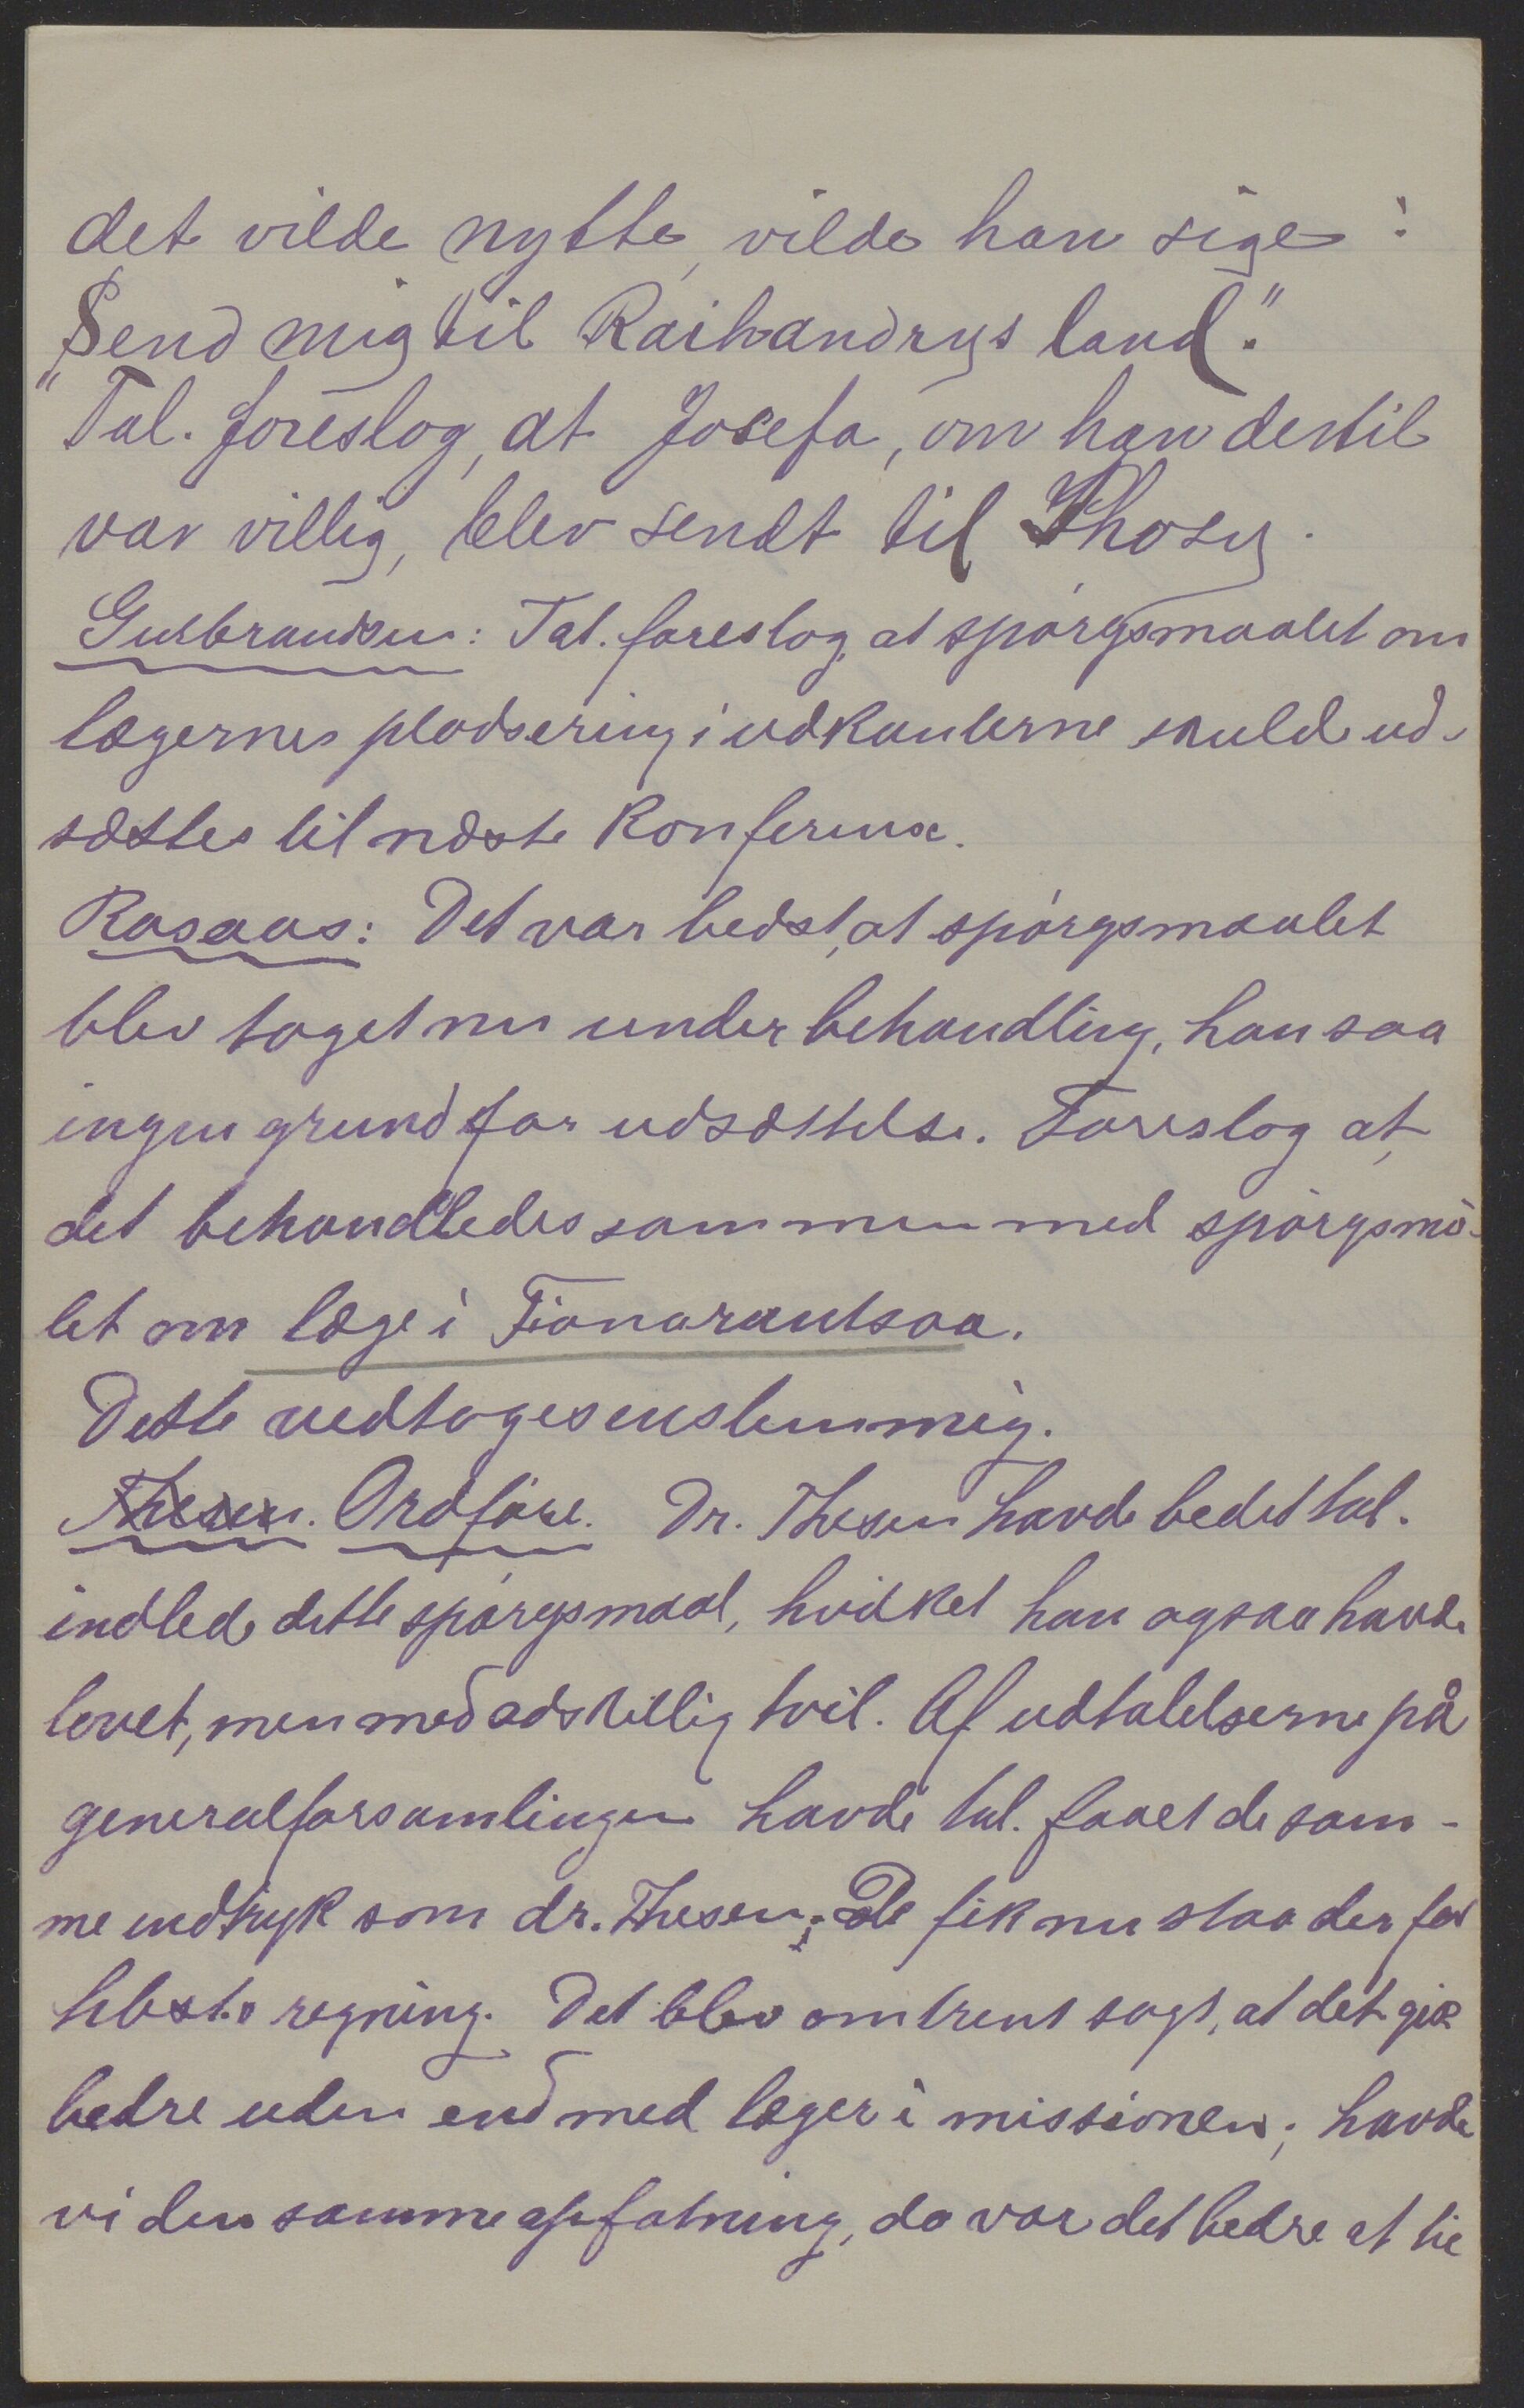 det vilde nytte, vilde han sige:
"Send mig til Raihandrys land."
Tal. foreslog, at Josefa, om han dertil
var villig, blev sendt til Ihosy.
Gulbrandsen: Tal. foreslog, at spörgsmaalet om
lægernes pladsering i udkanterne skulde ud-
sættes til næste konferense.
Rosaas: Det var bedst, at spörgsmaalet
blev taget nu under behandling, han saa
ingen grund for udsættelse. Foreslog at,
det behandledes sammen med spörgsmå-
let om læge i Fianarantsoa.
Dette vedtoges enstemmig.
Thesen. Ordföre. Dr. Thesen havde bedet tal.
indlede dette spörgsmaal, hvilket han ogsaa havde
lovet, men med adskillig tvil. Af udtalelserne på
generalforsamlingen havde tal. faaet de sam-
me indtryk som dr. Thesen; De fik nu staa der for
hbest.s regning. Det blev omtrent sagt, at det gik
bedre uden end med læger i missionen; havde
vi den samme opfatning, da var det bedre at tie